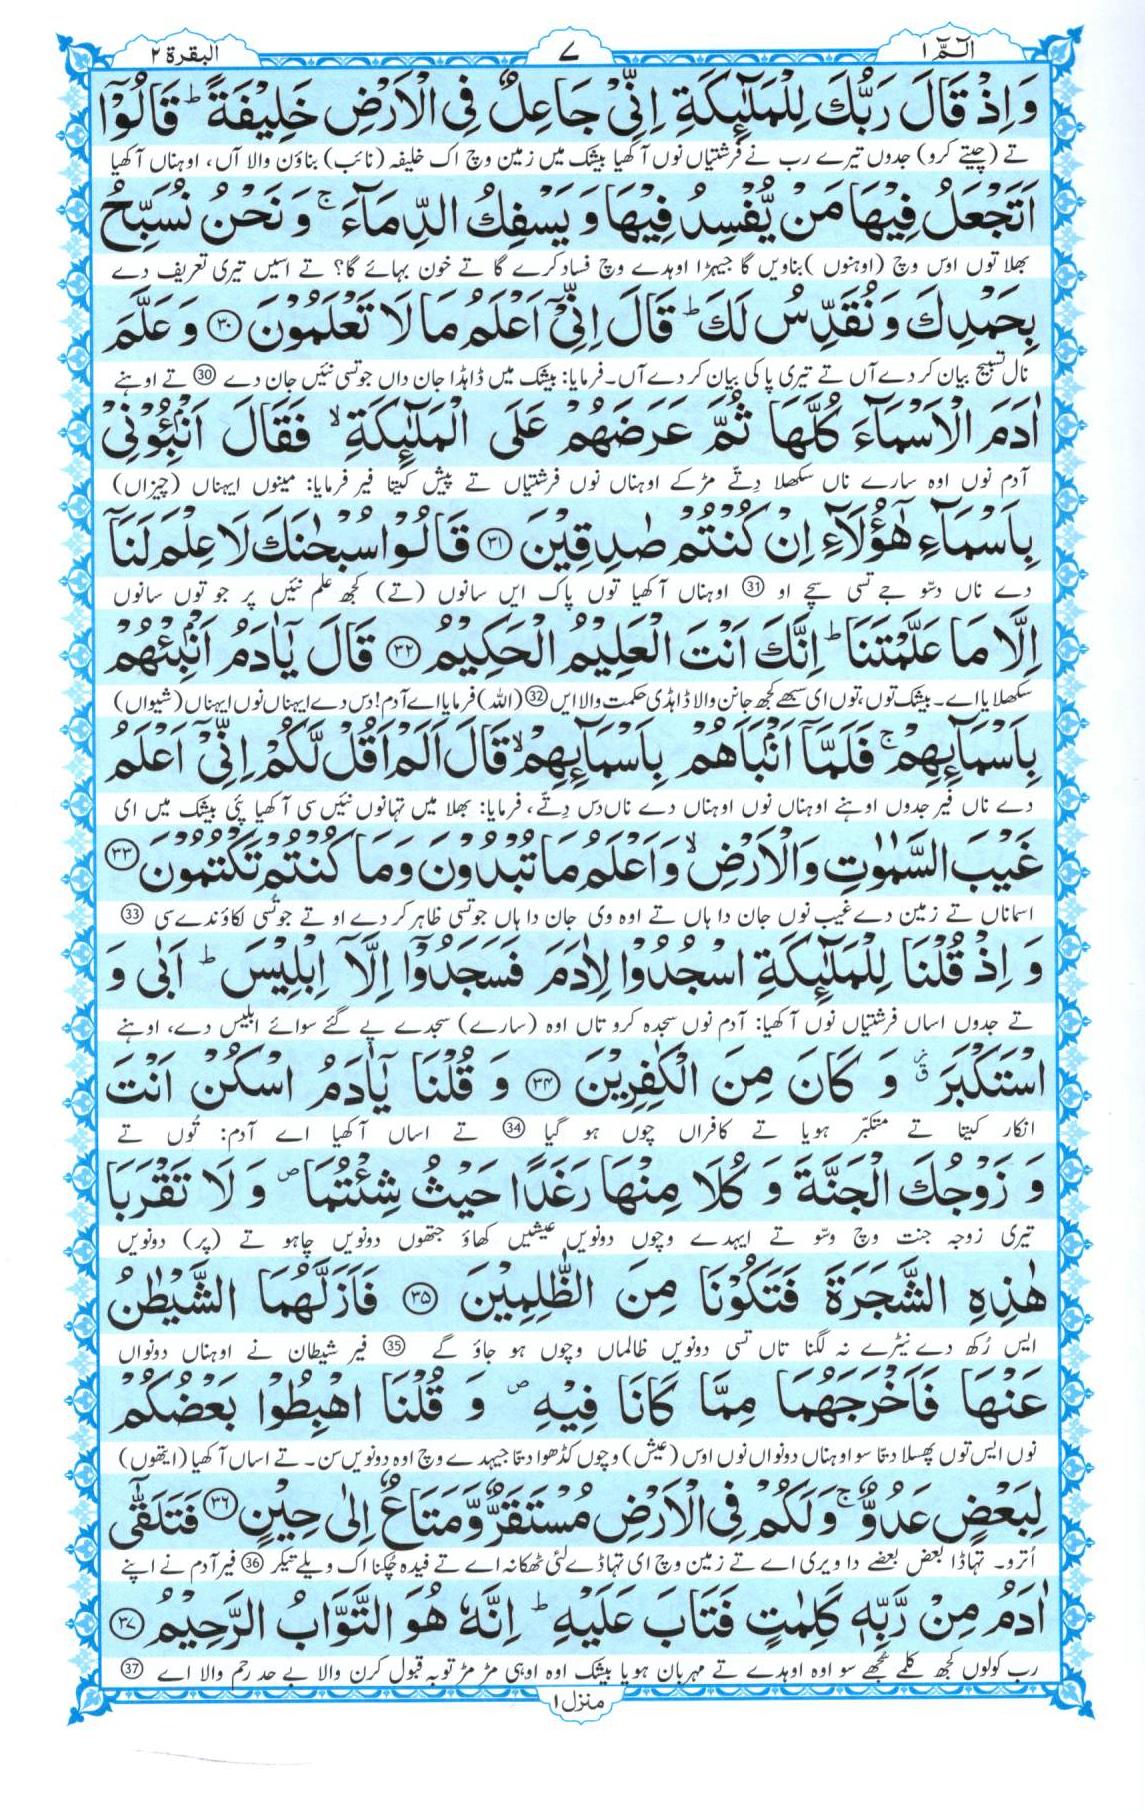 الٓمّٓ ۱
۷
البقرة ۲
وَ اِذْ قَالَ رَبُّكَ لِلْمَلٰٓىِٕكَةِ اِنِّیْ جَاعِلٌ فِی الْاَرْضِ خَلِیْفَةً ؕ قَالُوْۤا
تے (چیتے کرو) جدوں تیرے رب نے فرشتیاں نوں آکھیا بیشک میں زمین وچ اک خلیفہ (نائب) بناؤن والا آں، اوہناں آکھیا
اَتَجْعَلُ فِیْهَا مَنْ یُّفْسِدُ فِیْهَا وَ یَسْفِكُ الدِّمَآءَ ۚ وَ نَحْنُ نُسَبِّحُ
بھلا توں اوس وچ (اوہنوں) بناویں گا جیہڑا اوہدے وچ فساد کرے گا تے خون بہائے گا؟ تے اسیں تیری تعریف دے
بِحَمْدِكَ وَ نُقَدِّسُ لَكَ ؕ قَالَ اِنِّیْۤ اَعْلَمُ مَا لَا تَعْلَمُوْنَ ۳۰ وَ عَلَّمَ
نال تسبیح بیان کردے آں تے تیری پاکی بیان کردے آں۔ فرمایا: بیشک میں ڈاہڈا جان داں جو تسی نئیں جان دے 30 تے اوہنے
اٰدَمَ الْاَسْمَآءَ كُلَّهَا ثُمَّ عَرَضَهُمْ عَلَی الْمَلٰٓىِٕكَةِ ۙ فَقَالَ اَنْۢبِـُٔوْنِیْ
آدم نوں اوہ سارے ناں سکھلا دِتّے مڑکے اوہناں نوں فرشتیاں تے پیش کیتا فیر فرمایا: مینوں ایہناں (چیزاں)
بِاَسْمَآءِ هٰۤؤُلَآءِ اِنْ كُنْتُمْ صٰدِقِیْنَ ۳۱ قَالُوْا سُبْحٰنَكَ لَا عِلْمَ لَنَاۤ
دے ناں دسّو جے تسی سچے او 31 اوہناں آکھیا توں پاک ایں سانوں (تے) کجھ علم نئیں پر جو توں سانوں
اِلَّا مَا عَلَّمْتَنَا ؕ اِنَّكَ اَنْتَ الْعَلِیْمُ الْحَكِیْمُ ۳۲ قَالَ یٰۤاٰدَمُ اَنْۢبِئْهُمْ
سکھلایا اے۔ بیشک توں، توں ای سبھے کجھ جانن والا ڈاہڈی حکمت والا ایں 32 (اللہ) فرمایا اے آدم! دس دے ایہناں نوں ایہناں (شیواں)
بِاَسْمَآىِٕهِمْ ۚ فَلَمَّاۤ اَنْۢبَاَهُمْ بِاَسْمَآىِٕهِمْ ۙ قَالَ اَلَمْ اَقُلْ لَّكُمْ اِنِّیْۤ اَعْلَمُ
دے ناں فیر جدوں اوہنے اوہناں نوں اوہناں دے ناں دس دِتّے، فرمایا: بھلا میں تہانوں نئیں سی آکھیا پئی بیشک میں ای
غَیْبَ السَّمٰوٰتِ وَ الْاَرْضِ ۙ وَ اَعْلَمُ مَا تُبْدُوْنَ وَ مَا كُنْتُمْ تَكْتُمُوْنَ ۳۳
اسماناں تے زمین دے غیب نوں جان دا ہاں تے اوہ وی جان دا ہاں جو تسی ظاہر کردے او تے جو تُسی لکاؤندے سی 33
وَ اِذْ قُلْنَا لِلْمَلٰٓىِٕكَةِ اسْجُدُوْا لِاٰدَمَ فَسَجَدُوْۤا اِلَّاۤ اِبْلِیْسَ ؕ اَبٰی وَ
تے جدوں اساں فرشتیاں نوں آکھیا: آدم نوں سجدہ کرو تاں اوہ (سارے) سجدے پے گئے سوائے ابلیس دے، اوہنے
اسْتَكْبَرَ ؗۗ وَ كَانَ مِنَ الْكٰفِرِیْنَ ۳۴ وَ قُلْنَا یٰۤاٰدَمُ اسْكُنْ اَنْتَ
انکار کیتا تے متکبّر ہویا تے کافراں چوں ہو گیا 34 تے اساں آکھیا اے آدم: تُوں تے
وَ زَوْجُكَ الْجَنَّةَ وَ كُلَا مِنْهَا رَغَدًا حَیْثُ شِئْتُمَا ۪ وَ لَا تَقْرَبَا
تیری زوجہ جنت وچ وسّو تے ایہدے وچوں دونویں عیشیں کھاؤ جتھوں دونویں چاہو تے (پر) دونویں
هٰذِهِ الشَّجَرَةَ فَتَكُوْنَا مِنَ الظّٰلِمِیْنَ ۳۵ فَاَزَلَّهُمَا الشَّیْطٰنُ
ایس رُکھ دے نیڑے نہ لگنا تاں تسی دونویں ظالماں وچوں ہو جاؤ گے 35 فیر شیطان نے اوہناں دونواں
عَنْهَا فَاَخْرَجَهُمَا مِمَّا كَانَا فِیْهِ ۪ وَ قُلْنَا اهْبِطُوْا بَعْضُكُمْ
نوں ایس توں پھسلا دتا سو اوہناں دونواں نوں اوس (عیش) وچوں کڈھوا دتا جیہدے وچ اوہ دونویں سن۔ تے اساں آکھیا (ایتھوں)
لِبَعْضٍ عَدُوٌّ ۚ وَ لَكُمْ فِی الْاَرْضِ مُسْتَقَرٌّ وَّ مَتَاعٌ اِلٰی حِیْنٍ ۳۶ فَتَلَقّٰۤی
اُترو۔ تہاڈا بعض بعضے دا ویری اے تے زمین وچ ای تہاڈے لئی ٹھکانہ اے تے فیدہ چُکنا اک ویلے تیکر 36 فیر آدم نے اپنے
اٰدَمُ مِنْ رَّبِّهٖ كَلِمٰتٍ فَتَابَ عَلَیْهِ ؕ اِنَّهٗ هُوَ التَّوَّابُ الرَّحِیْمُ ۳۷
رب کولوں کجھ کلمے سِکھے سو اوہ اوہدے تے مہربان ہویا بیشک اوہ اوہی مڑ مڑ توبہ قبول کرن والا بے حد رحم والا اے 37
منزل ۱